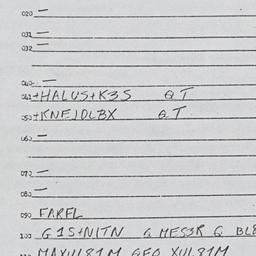 020 —
031 —
032 —
040 —
041 +HALUS+K3S QT
050 +KNEJDLBX QT
060 —
070 —
080 —
090 FARFL
100 G1S+NITN G MES3R G BL8
MAXUL81M GEO XUL81M